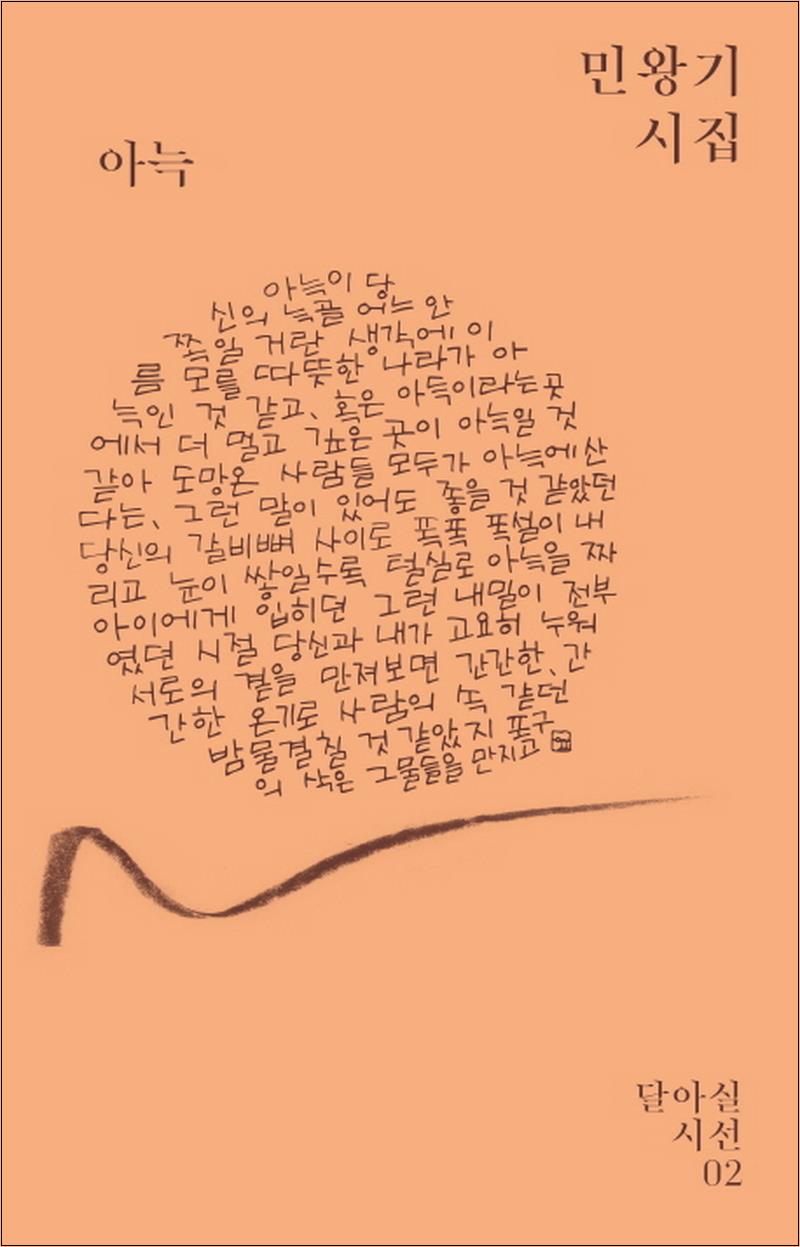 민왕기
시집
아늑
아늑이 당
신의 늑골 어느 안
쪽일 거란 생각에 이
름 모를 따뜻한 나라가 아
늑인 것 같고, 혹은 아득이라는 곳
에서 더 멀고 깊은 곳이 아늑일 것
같아 도망온 사람들 모두가 아늑에 산
다는, 그런 말이 있어도 좋을 것 같았던
당신의 갈비뼈 사이로 폭폭 폭설이 내
리고 눈이 쌓일수록 털실로 아늑을 짜
아이에게 입히던 그런 내밀이 전부
였던 시절 당신과 내가 고요히 누워
서로의 곁을 만져보면 간간한, 간
간한 온기로 사람의 속 같던
밤물결칠 것 같았지 포구
의 삭은 그물들을 만지고
달아실
시선
02